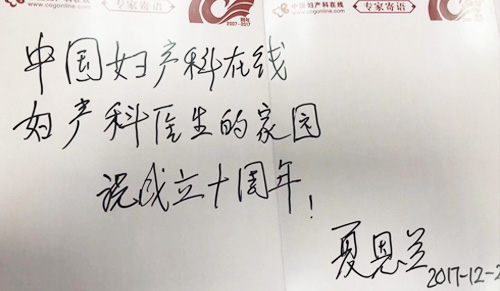 中国妇产科在线
www.cogonline.com
专家寄语
2007-2017
中国妇产科在线
www.cogonline.com
专家寄语
中国妇产科在线
妇产科医生的家园
祝成立十周年！
夏恩兰
2017-12-2